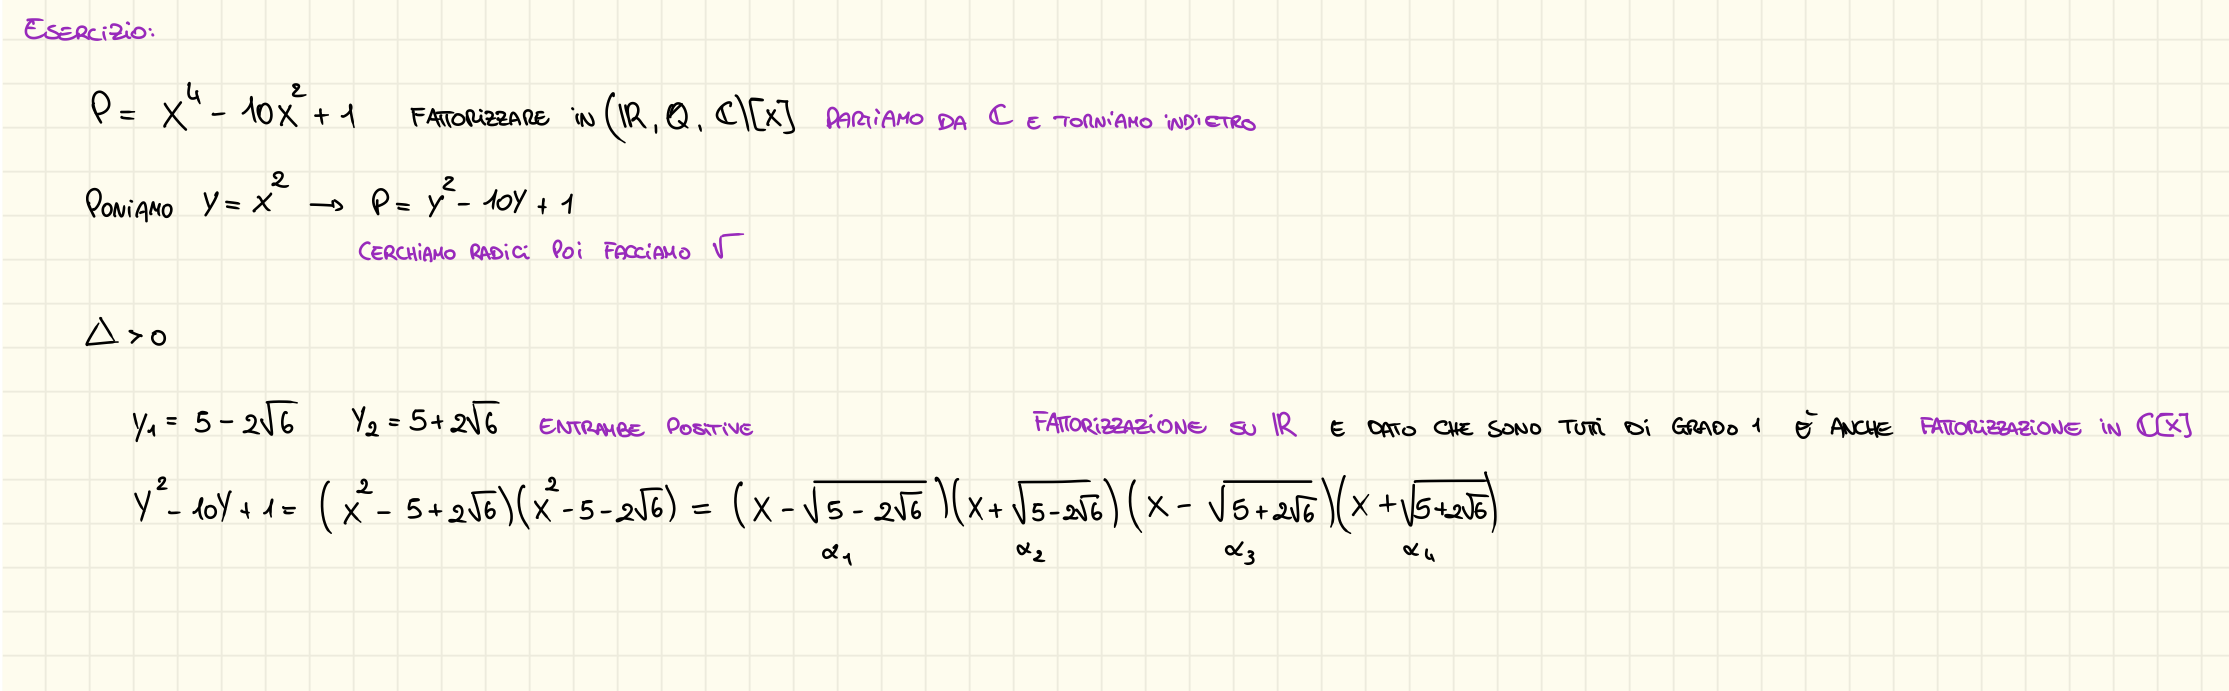 ESERCIZIO:
P = x⁴ - 10x² + 1 FATTORIZZARE IN (ℝ, ℚ, ℂ)[x] PARTIAMO DA ℂ E TORNIAMO INDIETRO
PONIAMO y = x² → P = y² - 10y + 1
CERCHIAMO RADICI POI FACCIAMO √
Δ > 0
y₁ = 5 - 2√6 y₂ = 5 + 2√6 ENTRAMBE POSITIVE FATTORIZZAZIONE SU ℝ E DATO CHE SONO TUTTI DI GRADO 1 È ANCHE FATTORIZZAZIONE IN ℂ[x]
y² - 10y + 1 = (x² - 5 + 2√6)(x² - 5 - 2√6) = (x - √(5 - 2√6))(x + √(5 - 2√6))(x - √(5 + 2√6))(x + √(5 + 2√6))
α₁ α₂ α₃ α₄